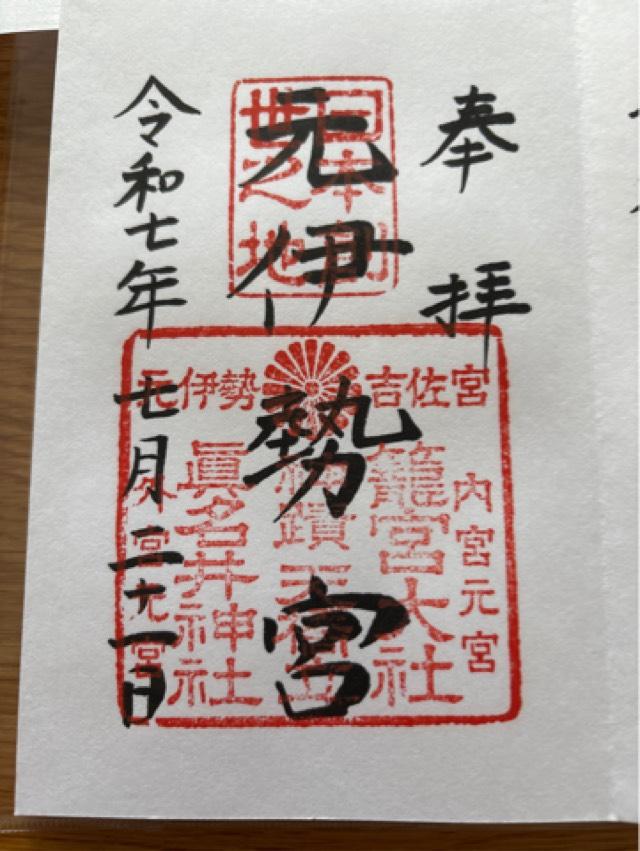 奉拝
日本創
世之地
元伊勢宮
元伊勢 吉佐宮
内宮元宮
籠宮大社
神蹟天橋立
眞名井神社
外宮元宮
令和七年七月二十一日